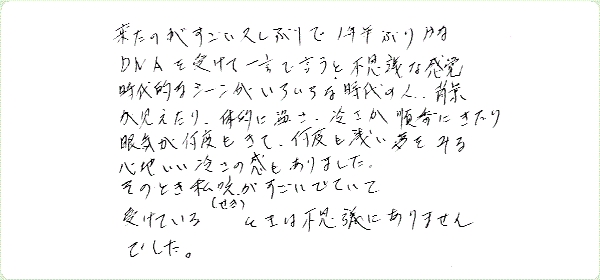 来たのがすごい久しぶりで1年半ぶり位な
DNAを受けて一言で言うと不思議な感覚
時代的なシーンがいろいろな時代の人、背景
が見えたり、体的に温さ、冷さが順番にきたり
眠気が何度もきて、何度も浅い夢をみる
心地いい冷さの感もありました。
そのとき私咳がすごいでていて
(せき)
受けている ときは不思議にありません
でした。